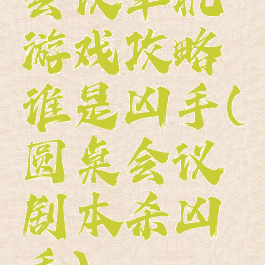 会议单机
游戏攻略
谁是凶手(
圆桌会议
剧本杀凶
手)